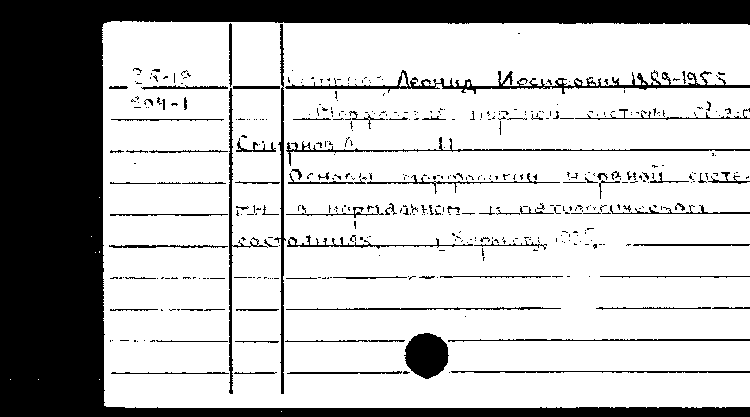 Смирнов, Леонид Иосифович, 1889-1955
204-1
Морфология нервной системы
Смирнов, Л. И.
Основы морфологии нервной систе-
мы в нормальном и патологическом
состояниях. Харьков, 1935.